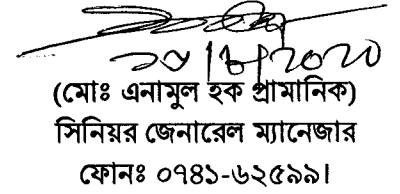 (মোঃ এনামুল হক প্রামানিক)
সিনিয়র জেনারেল ম্যানেজার
ফোনঃ ০৭৪১-৬২৫৯৯।